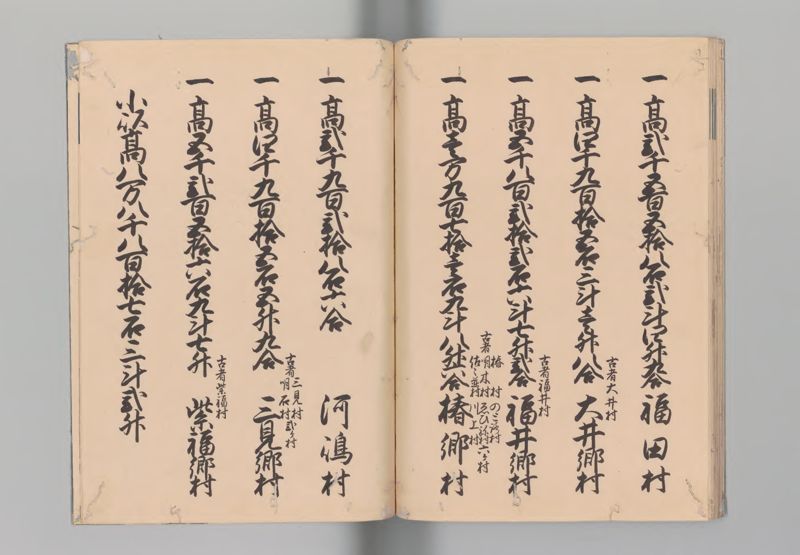 一 高弐千五百五拾八石弐斗四升九合 福田村
一 高四千九百拾五石三斗壱升八合 大井郷村
古者大井村
一 高五千八百弐拾弐石六斗七升弐合 福井郷村
古者福井村
一 高壱万九百七拾壱石九斗八升八合 椿郷村
古者
椿村 村
明木村 六ヶ村
佐々並村 川上村
一 高弐千九百弐拾八石六合 河嶋村
一 高四千九百拾五石五升九合 三見郷村
古者 三見村
明石村 弐ヶ村
一 高五千弐百五拾六石九斗七升 紫福郷村
古者紫福村
小以高八万八千八百拾七石三斗弐升